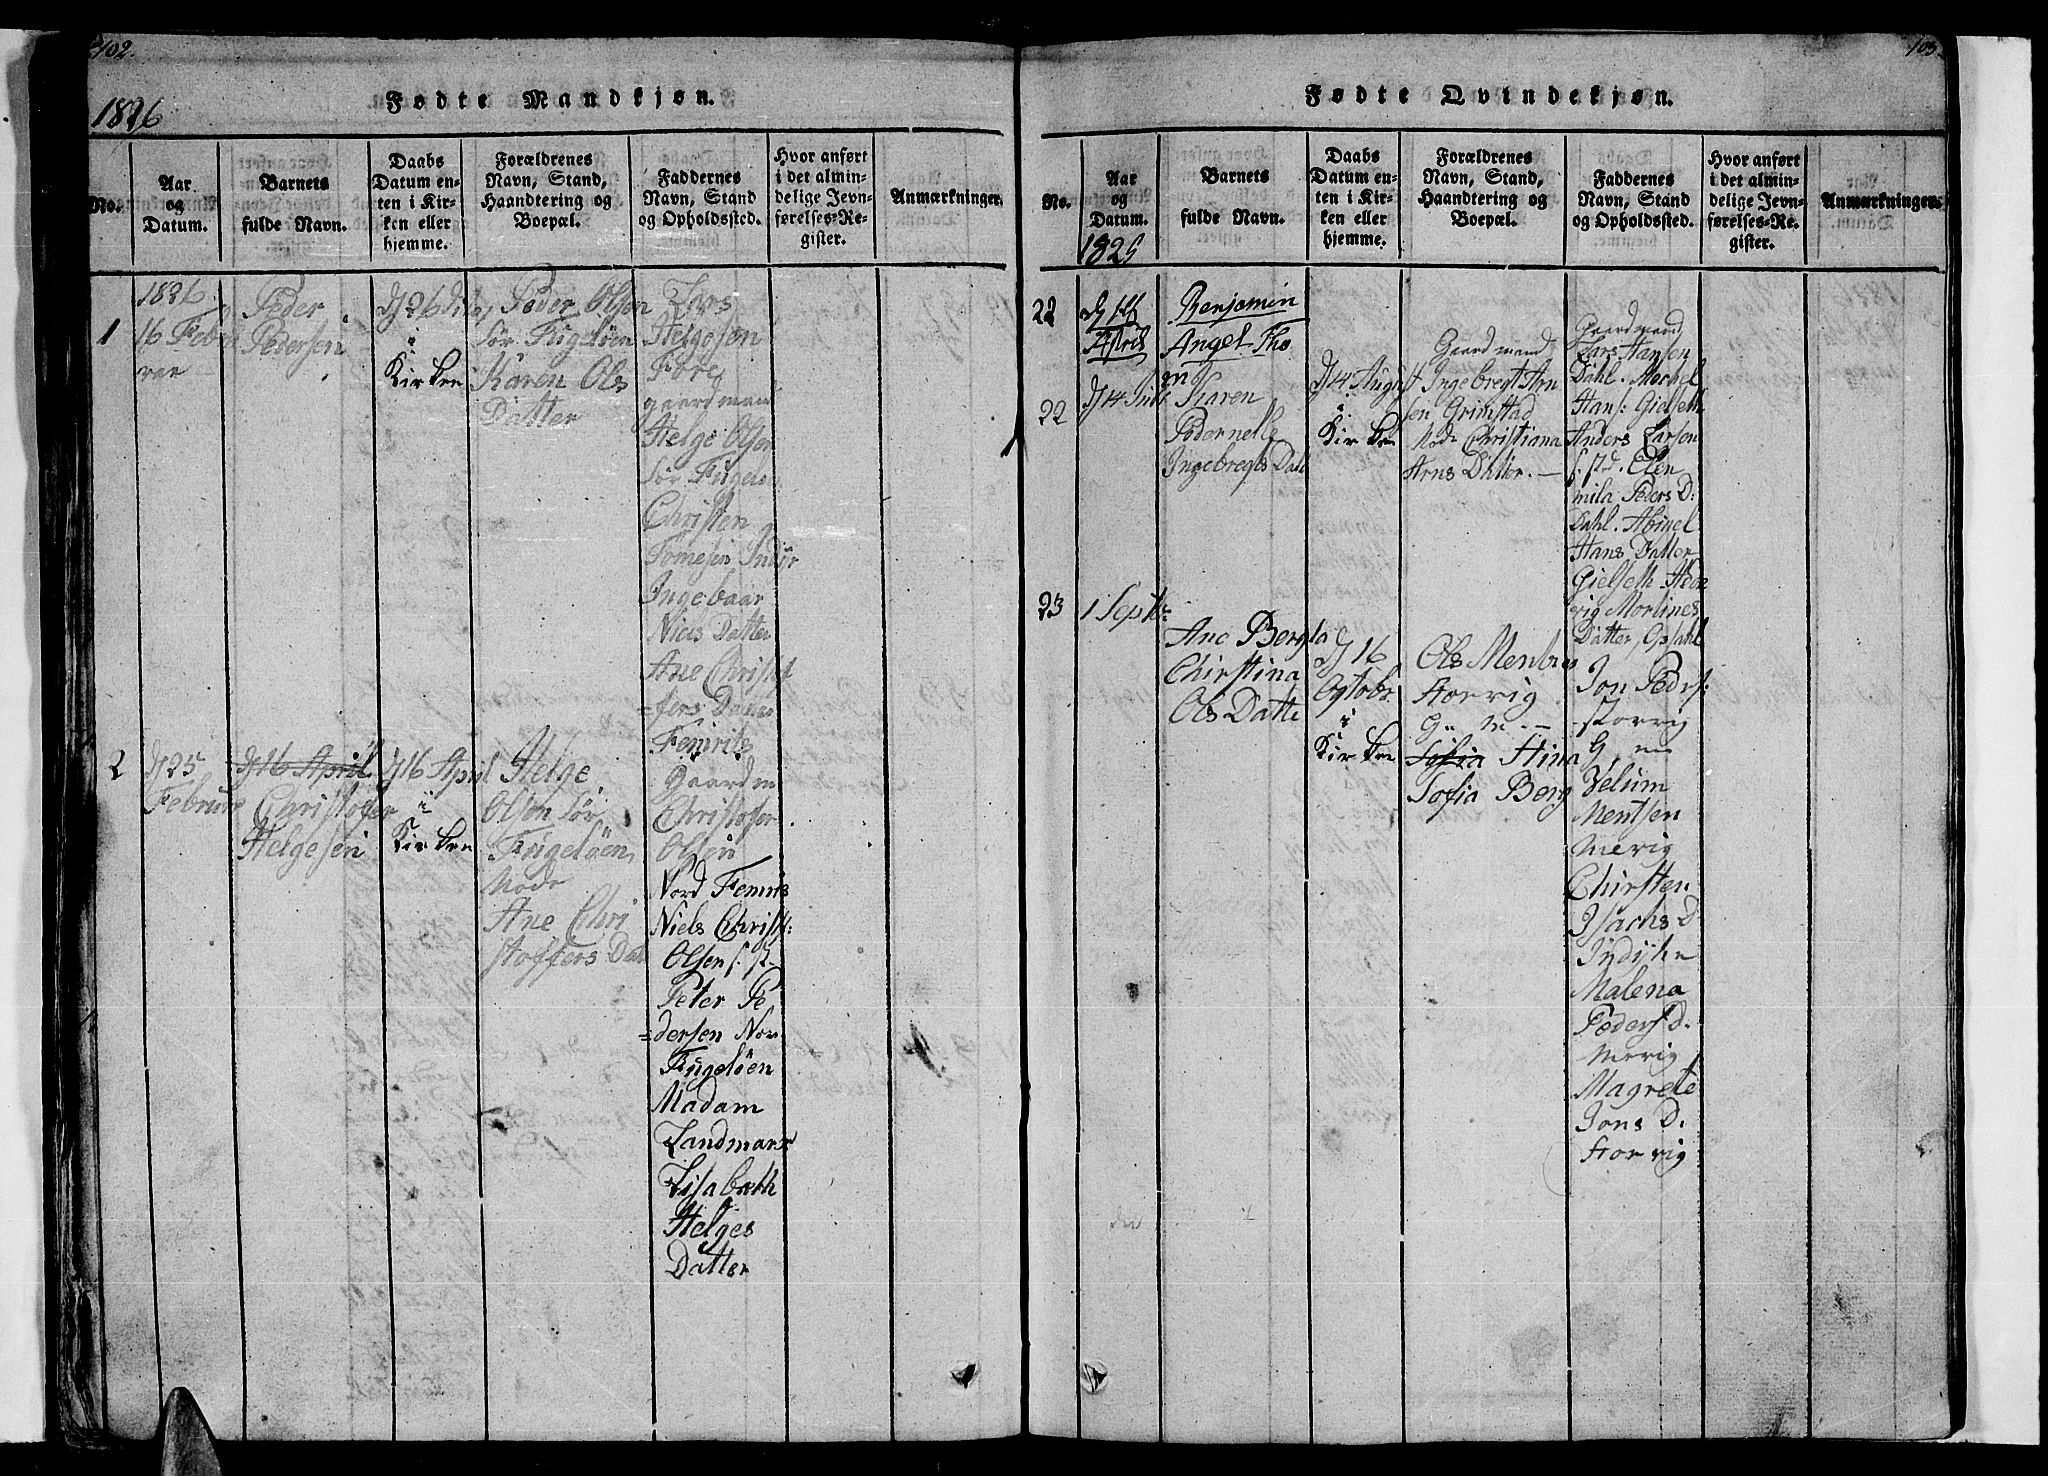 102.
1826
Fødte Mandkjøn.
No.
Aar
og
Datum.
Barnets
fulde Navn.
Daabs
Datum en-
ten i Kir-
ken eller
hjemme.
Forældrenes
Navn, Stand,
Haandtering og
Boepæl.
Faddernes
Navn, Stand
og Opholdssted.
Hvor anført
i det almin-
delige Jevn-
førelses-Re-
gister.
Anmærkninger.
1
1826
16 Febru
rar
Peder
Pedersen
i
Kirken
Peder Olsen
sör Fugløen
Karen Ols
Datter
Lars
Helgesen
Fore
gaardman
Helge Olsen
sör Fugløen
Christen
Tomesen Indyr
Ingebaar
Niels Datter
Ane Christof
=fers Datter
Femris
2
D 25
Februar
D 16 April
Christofer
Helgesen
D 16 April
i
Kirken
Helge
Olsen sör
Fugeløen
Mode
Ane Chri
stoffers Datt
Gaardm
Christofer
Olsen
Nord Femris
Niels Christ:
Olsen s. st
Peter Pe
=dersen Nor
Fugeløen
Madam
Landmark
Lisabeth
Helges
Datter
103.
Fødte Qvindekjøn.
No.
Aar
og
Datum.
1825
Barnets
fulde Navn.
Daabs
Datum en-
ten i Kir-
ken eller
hjemme.
Forældrenes
Navn, Stand,
Haandtering og
Boepæl.
Faddernes
Navn, Stand
og Opholdssted.
Hvor anført
i det almin-
delige Jevn-
førelses-Re-
gister.
Anmærkninger.
22
Benjamin
Angel. Tho
22
D 14 Juli
Karen
Pedernelle
Ingebregts Datt
D 14 Augus
i
Kirken
Gaardmand
Ingebregt Arn
sen Grimstad
Mode Christiana
Arns Datter. —
Gaardmand
Lars Hansen
Dahl. Mechel
Hans: Gielseth
Anders Larsen
s. st. Elen
mila Peders D:
Dahl. Abigel
Hans Datter
Gielseth
Mortines
Datter, Opsahl
23
1 Septbr:
Ane Bergta
Christina
Ols Datte
D 16
Octobr.
i
Kirken
Ols Mentsen
Storvig
G: m —
Sofia Stina
Sofia Berg
Jon Peders:
Storvig
G m
Velum
Mentsen
Mevig
Chirsten
Isachs D
Malena
Peders D.
Mevig
Magrete
Jons D.
Storvig